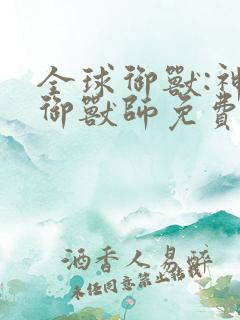 全球御獸:神
御獸師免費
酒香人易醉
未经同意禁止转载